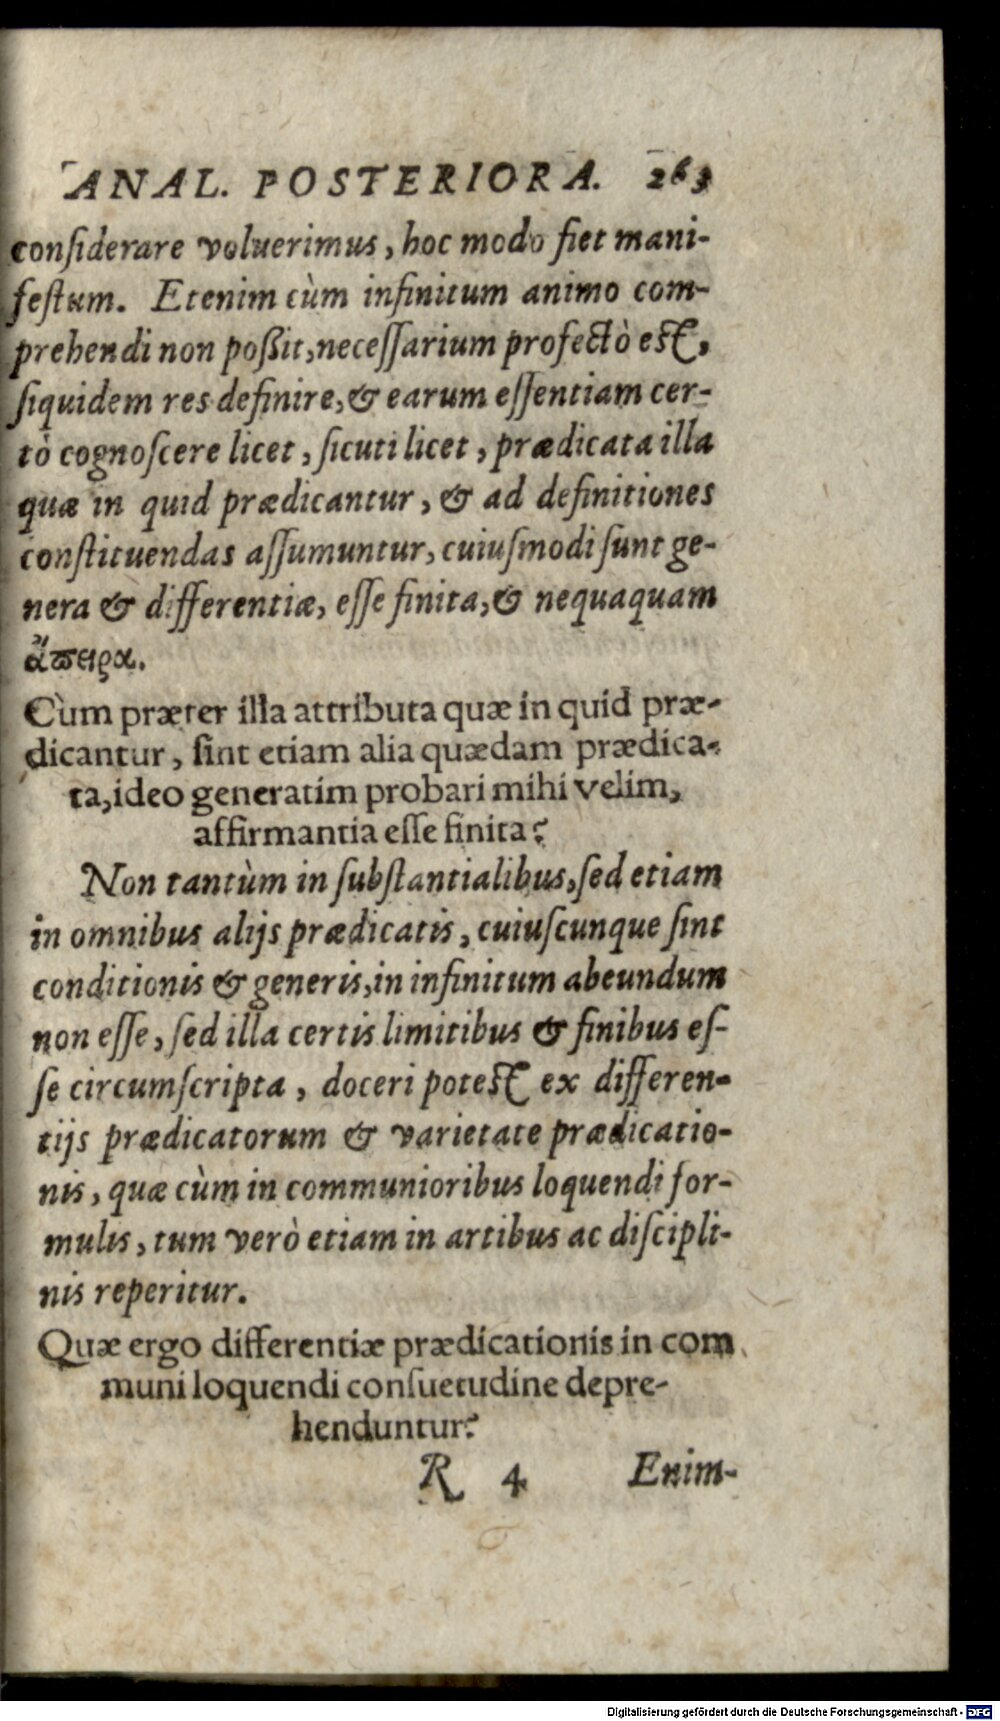 ANAL. POSTERIORA. 263
conſiderare voluerimus, hoc modo fiet mani-
feſtum. Etenim cùm infinitum animo com-
prehendi non poßit, neceſſarium profectò est,
ſiquidem res definire, & earum eſſentiam cer-
tò cognoſcere licet, ſicuti licet, prædicata illa
quæ in quid prædicantur, & ad definitiones
conſtituendas aſſumuntur, cuiuſmodi ſunt ge-
nera & differentiæ, eſſe finita, & nequaquam
ἄπειρα.
Cùm præter illa attributa quæ in quid præ-
dicantur, ſint etiam alia quædam prædica-
ta, ideo generatim probari mihi velim,
affirmantia eſſe finita?
Non tantùm in ſubſtantialibus, ſed etiam
in omnibus alijs prædicatis, cuiuſcunque ſint
conditionis & generis, in infinitum abeundum
non eſſe, ſed illa certis limitibus & finibus eſ-
ſe circumſcripta, doceri potest ex differen-
tijs prædicatorum & varietate prædicatio-
nis, quæ cùm in communioribus loquendi for-
mulis, tum verò etiam in artibus ac diſcipli-
nis reperitur.
Quæ ergo differentiæ prædicationis in com
muni loquendi conſuetudine depre-
henduntur?
R 4 Enim-
Digitalisierung gefördert durch die Deutsche Forschungsgemeinschaft - DFG